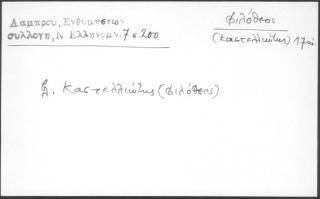 Λαμπρου, Ενθυμησεων
συλλογη, Ν Ελληνομν. 7 σ. 200
φιλόθεος
(Καστελλιώτης) 17 αἰ.
βλ. Καστελλιώτης (φιλόθεος)